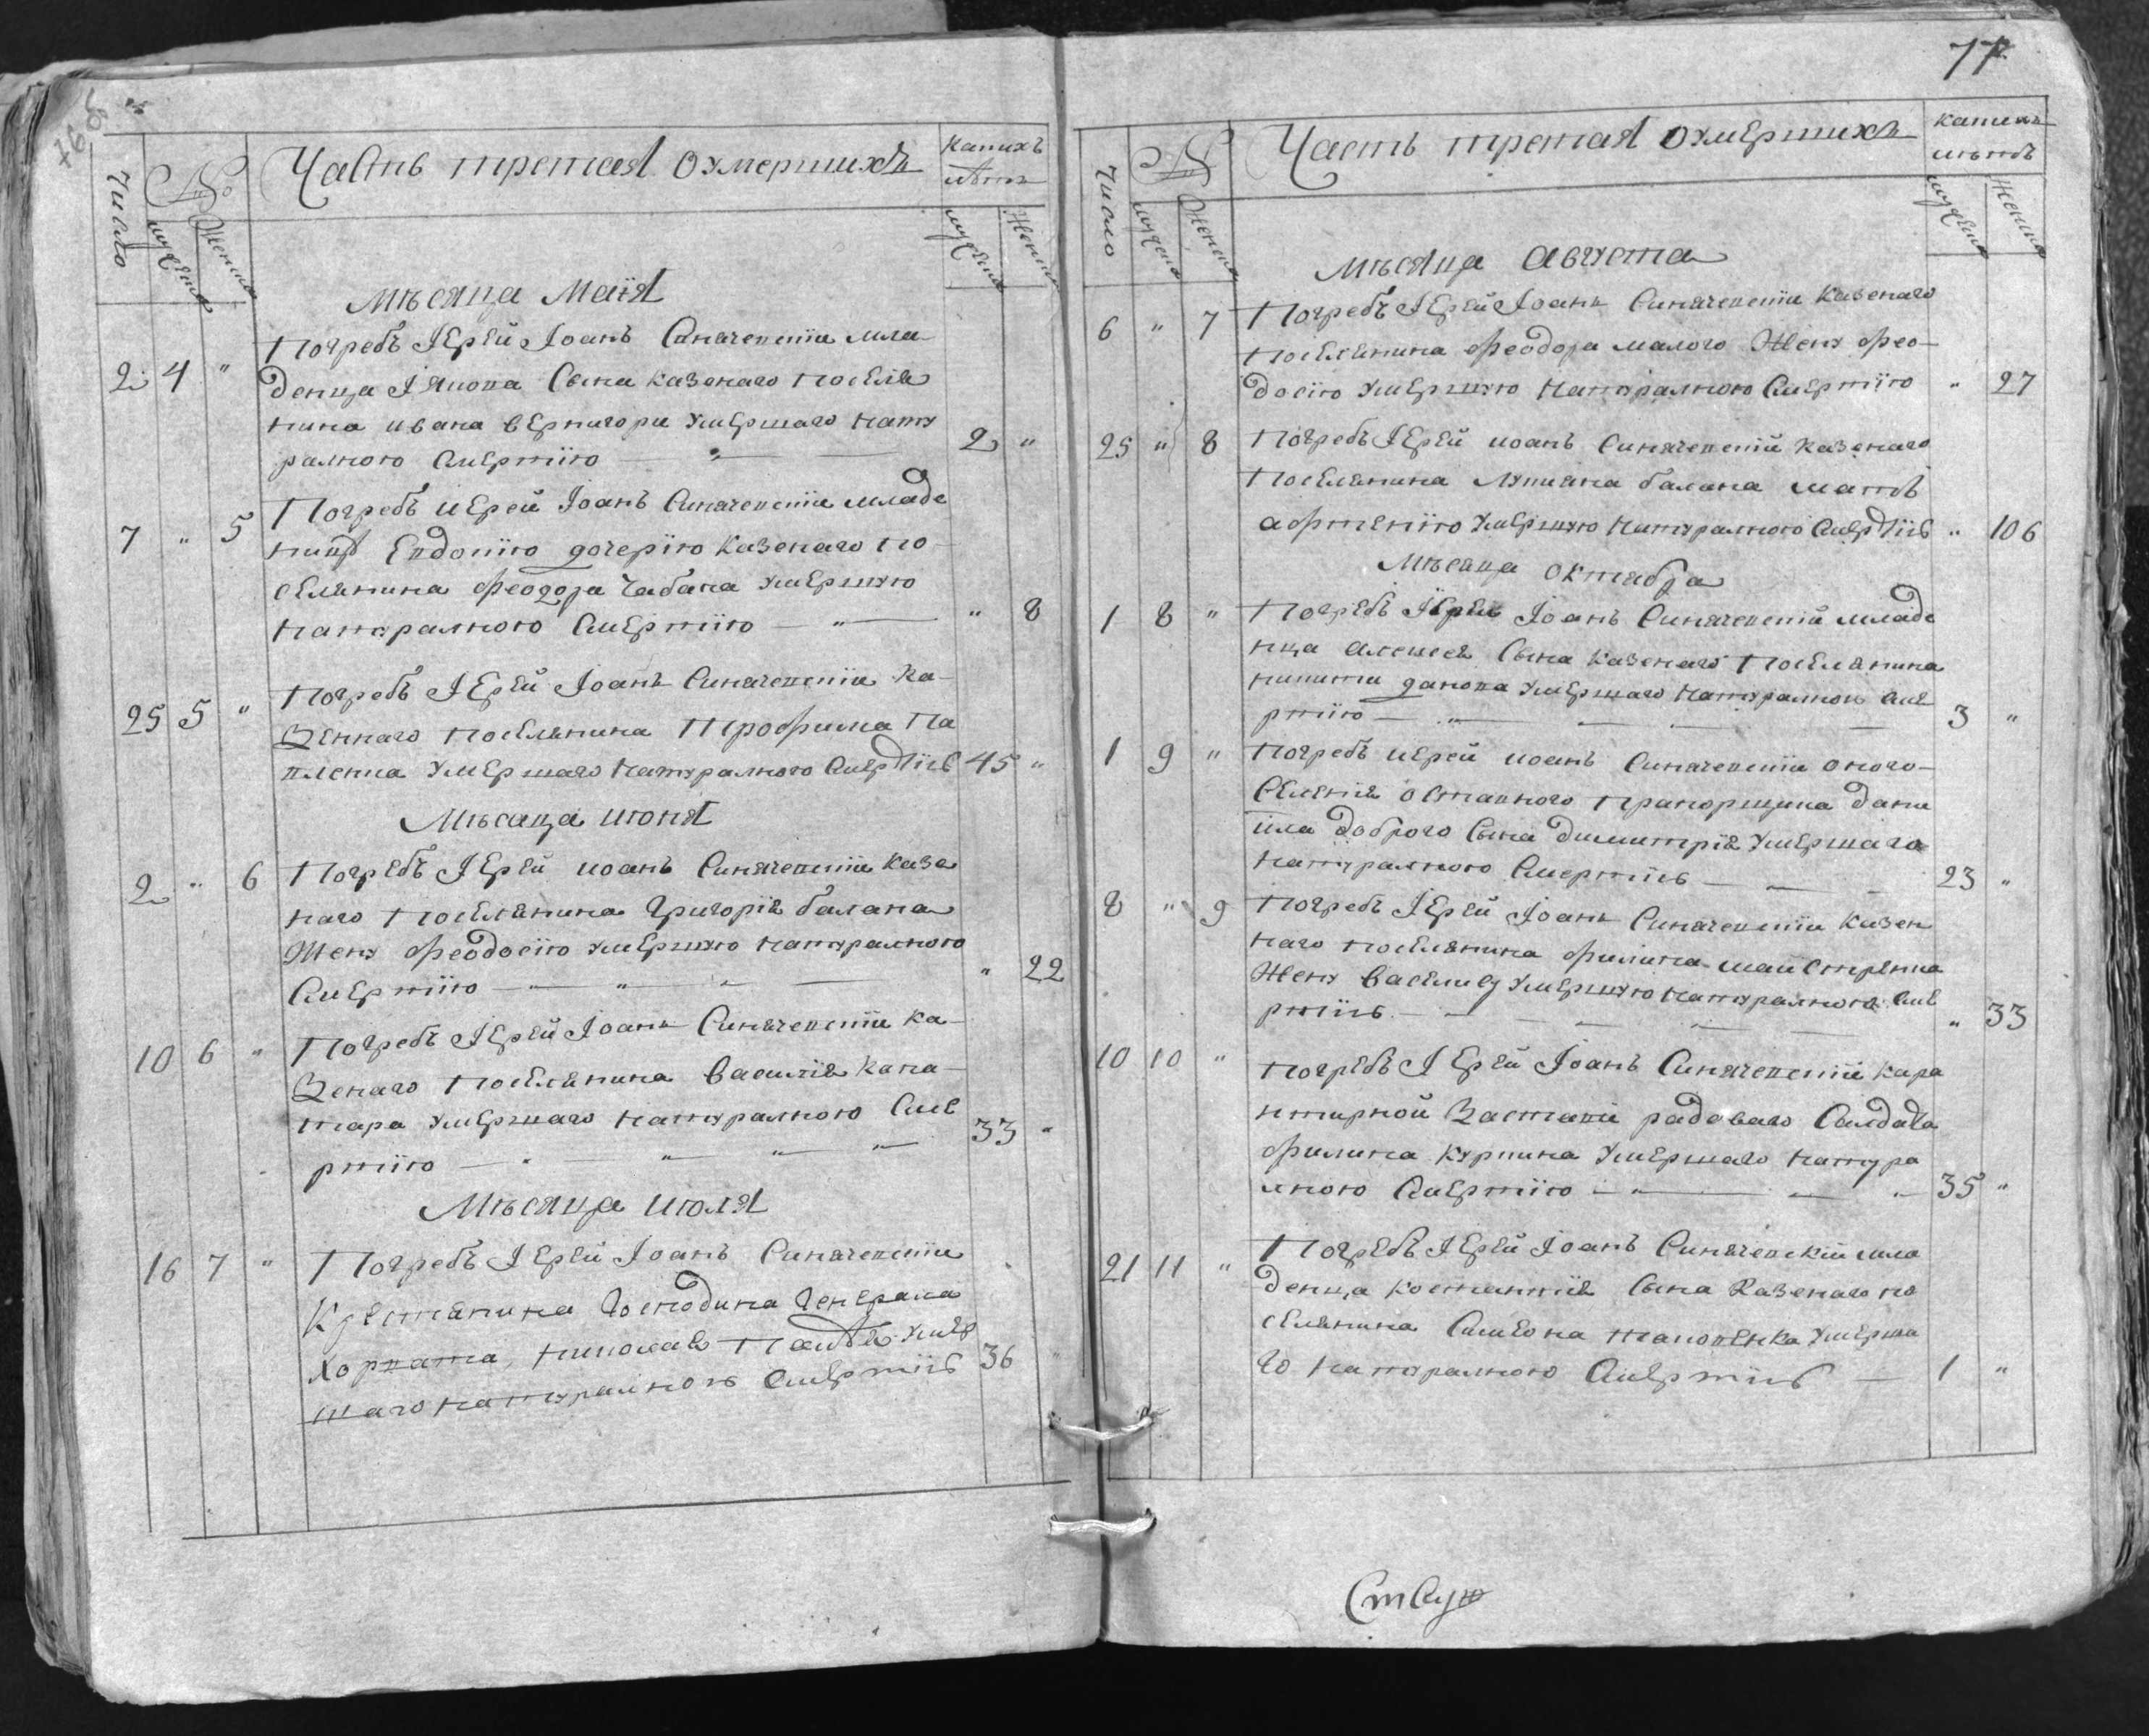 Число
№
мужеска
женска
Часть третая Оумершихъ
какихъ
лѣтъ
мужеска
женска
Мѣсяца Маія
2 4 " Погребъ Іерей Іоанъ Синячевскіи мла
денца Іякова Сына казенаго поселя
нина ивана вернигори умершаго нату
ралною смертію — " — 2 "
7 " 5 Погребъ иерей Іоанъ Синячевскіи младе
ницу Евдокію дочерію казенаго по
селянина Феодора Чабана умершую
натуралною смертію — " — " 8
25 5 " Погребъ Іерей Іоанъ Синячевскіи ка
зеннаго поселянина Трофима Па
вленка умершаго натуралною смертіѣ 45 "
Мѣсаца июня
2 " 6 Погребъ Іерей иоанъ Синячевскіи казе
наго поселянина Григорія балана
жену Феодосію умершую натуралною
смертію — " — " — " 22
10 6 " Погребъ Іерей Іоанъ Синячевскіи ка
зенаго поселянина василія кана
тара умершаго натуралною сме
ртію — " — " — " — " 33 "
Мѣсяца июля
16 7 " Погребъ Іерей Іоанъ Синячевскіи
крестянина Господина Генерала
умер
шаго натуралною смертіѣ 36 "
77
Число
№
мужеска
женска
Часть третая Оумершихъ
какихъ
лѣтъ
мужеска
женска
Мѣсяца Августа
6 " 7 Погребъ Іерей Іоанъ Синячевскіи казенаго
поселянина Феодора малого жену Фео
досію умершую натуралною смертію " 27
25 " 8 Погребъ Іерей иоанъ Синячевскій казенаго
поселянина Лукиана балана матѣ
умершую натуралною смертіѣ " 106
Мѣсяца октября
1 8 " Погребъ Іерей Іоанъ Синячевскій младе
нца алексея Сына казенаго поселянина
никити данова умершаго натуралною сме
ртію — " — 3 "
1 9 " Погребъ иерей иоанъ Синячевскіи оного
Селенія оставного прапорщика дани
ила доброго Сына димитрія умершаго
натуралною смертіѣ — 23 "
8 " 9 Погребъ Іерей Іоанъ Синячевскіи казен
наго поселянина филипа майстренка
жену василису умершую натуралною сме
ртіѣ — " 33
10 10 " Погребъ Іерей Іоанъ Синячевскіи кара
нтирной Заставі радоваго Салдата
филипа куркина умершаго натура
лною смертію — " — 35 "
21 11 " Погребъ Іерей Іоанъ Синячевскіи мла
денца костантія Сына казенаго по
селянина Симеона умерша
го натуралною смертіѣ — 1 "